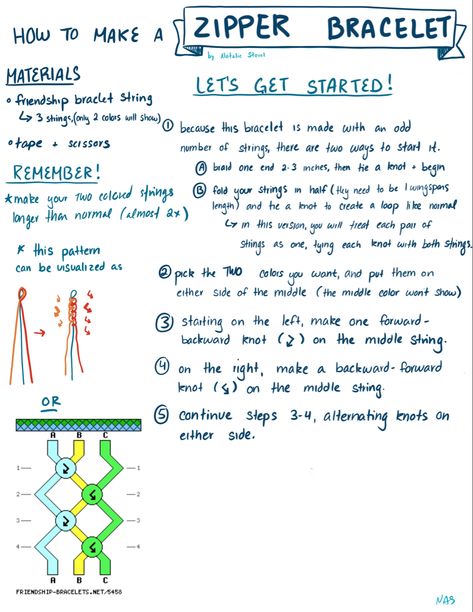 HOW TO MAKE A
ZIPPER BRACELET
by Natalie
MATERIALS
• friendship braclet string
↳ 3 strings, (only 2 colors will show)
• tape + scissors
REMEMBER!
* make your two colored strings
longer than normal (almost 2x)
* this pattern
can be visualized as
OR
A B C
1 1
2 2
3 3
4 4
A B C
FRIENDSHIP-BRACELETS.NET/5458
LET'S GET STARTED!
① because this bracelet is made with an odd
number of strings, there are two ways to start it.
Ⓐ braid one end 2-3 inches, then tie a knot + begin
Ⓑ fold your strings in half (they need to be 1 wingspans
length) and tie a knot to create a loop like normal
↳ in this version, you will treat each pair of
strings as one, tying each knot with both strings.
② pick the TWO colors you want, and put them on
either side of the middle (the middle color wont show)
③ starting on the left, make one forward-
backward knot (↘) on the middle string.
④ on the right, make a backward-forward
knot (↘) on the middle string.
⑤ continue steps 3-4, alternating knots on
either side.